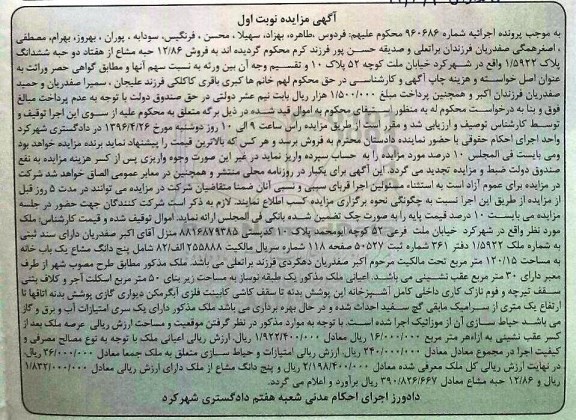 آگهی مزایده نوبت اول
به موجب پرونده اجرائیه شماره ۹۶۰۶۸۶ محکوم علیهم: فردوس ،طاهره، بهزاد، سهیلا ، محسن ، فرنگیس، سودابه ، پوران ، بهروز، بهرام، مصطفی
، اصغرهمگی صفدریان فرزندان براتعلی و صدیقه حسن پور فرزند کرم محکوم گردیده اند به فروش ۱۲/۸۶ حبه مشاع از هفتاد دو حبه ششدانگ
پلاک ۱/۵۹۲۲ واقع در شهرکرد خیابان ملت کوچه ۵۲ پلاک ۱۰ و تقسیم وجه آن بین ورثه به نسبت سهم آنها و مطابق گواهی حصر وراثت به
عنوان اصل خواسته و هزینه چاپ آگهی و کارشناسی در حق محکوم لهم خانم ها کبری باقری کاکلکی فرزند علیجان ، سمیرا صفدریان و حمید
صفدریان فرزندان اکبر و همچنین پرداخت مبلغ ۱/۵۰۰/۰۰۰ هزار ریال بابت نیم عشر دولتی در حق صندوق دولت با توجه به عدم پرداخت مبالغ
فوق و بنا به درخواست محکوم له به منظور استیفای محکوم به اموال قید شده در ذیل برگه متعلق به محکوم علیه از سوی این اجرا توقیف و
توسط کارشناس توصیف و ارزیابی شد و مقرر است از طریق مزایده راس ساعت ۹ الی ۱۰ روز دوشنبه مورخ ۱۳۹۶/۴/۲۶ در دادگستری شهرکرد
واحد اجرای احکام حقوقی با حضور نماینده دادستان محترم به فروش برسد و هر کس که بالاترین قیمت را پیشنهاد نماید برنده مزایده خواهد بود
ومی بایست فی المجلس ۱۰ درصد مورد مزایده را به حساب سپرده واریز نماید در غیر این صورت وجوه واریزی پس از کسر هزینه مزایده به نفع
صندوق دولت ضبط و مزایده تجدید می گردد. این آگهی برای یکبار در روزنامه محلی منتشر و همچنین در معابر عمومی الصاق خواهد شد شرکت
در مزایده برای عموم آزاد است به استثناء مسئولین اجرا قربای سببی و نسبی آنان ضمنا متقاضیان شرکت در مزایده می توانند در مدت ۵ روز قبل
از مزایده از طریق این اجرا نسبت به چگونگی نحوه برگزاری مزایده کسب اطلاع نمایند. لازم به ذکر است شرکت کنندگان جهت حضور در جلسه
مزایده می بایست ۱۰ درصد قیمت پایه را به صورت چک تضمین شده بانکی فی المجلس ارائه نماید. اموال توقیف شده و قیمت کارشناس: ملک
مورد نظر واقع در شهرکرد خیابان ملت فرعی ۵۲ کوچه ابومحمد پلاک ۱۰ کدپستی ۸۸۱۶۸۷۹۳۸۵ منزل آقای اکبر صفدریان دارای سند ثبتی
به شماره ملک ۱/۵۹۲۲ دفتر ۳۶۱ شماره ثبت ۵۰۵۲۷ صفحه ۱۱۸ شماره سریال مالکیت ۲۵۵۸۸۸ الف/۸۲ شامل پنج دانگ مشاع یک باب خانه
به مساحت ۱۲۰/۱۵ متر مربع تحت مالکیت مرحوم اکبر صفدریان دهکردی فرزند براتعلی می باشد. ملک مذکور مطابق طرح مصوب شهر از طرف
معبر دارای ۳۰ متر مربع عقب نشینی می باشد. اعیانی ملک مذکور یک طبقه نوساز به مساحت زیر بنای ۵۰ متر مربع اسکلت آجر و کلاف بتنی
سقف تیرچه و فوم نازک کاری داخلی کامل آشپزخانه این پوشش بدنه تا سقف کاشی کابینت فلزی آبگرمکن دیواری گازی پوشش بدنه اتاقها تا
ارتفاع یک متری از سرامیک مابقی گچ سفید احداث شده و در حال بهره برداری می باشد ملک مذکور دارای یک سری امتیازات آب و برق و گاز
می باشد. حیاط سازی آن از موزائیک اجرا شده است. با توجه به موارد مذکور در نظر گرفتن موقعیت و مساحت ارزش ریالی عرصه ملک بعد از
کسر عقب نشینی به ازاءهر متر مربع ۱۶/۰۰۰/۰۰۰ ریال معادل ۱/۹۲۲/۴۰۰/۰۰۰ ریال. ارزش ریالی اعیانی ملک با توجه به نوع مصالح مصرفی و
کیفیت اجرا در مجموع معادل معادل ۲۴۰/۰۰۰/۰۰۰ ریال. ارزش ریالی امتیازات و حیاط سازی متعلق به ملک جمعا معادل ۳۶/۰۰۰/۰۰۰ ریال.
در نهایت ارزش ریالی کل ملک معرفی شده معادل ۲/۱۹۸/۴۰۰/۰۰۰ ریال و پنج دانگ مشاع از ملک دارای ارزش ریالی معادل ۱/۸۳۲/۰۰۰/۰۰۰
ریال و ۱۲/۸۶ حبه مشاع معادل ۳۹۰/۸۲۶/۶۶۷ ریال برآورد و اعلام می گردد.
دادورز اجرای احکام مدنی شعبه هفتم دادگستری شهرکرد